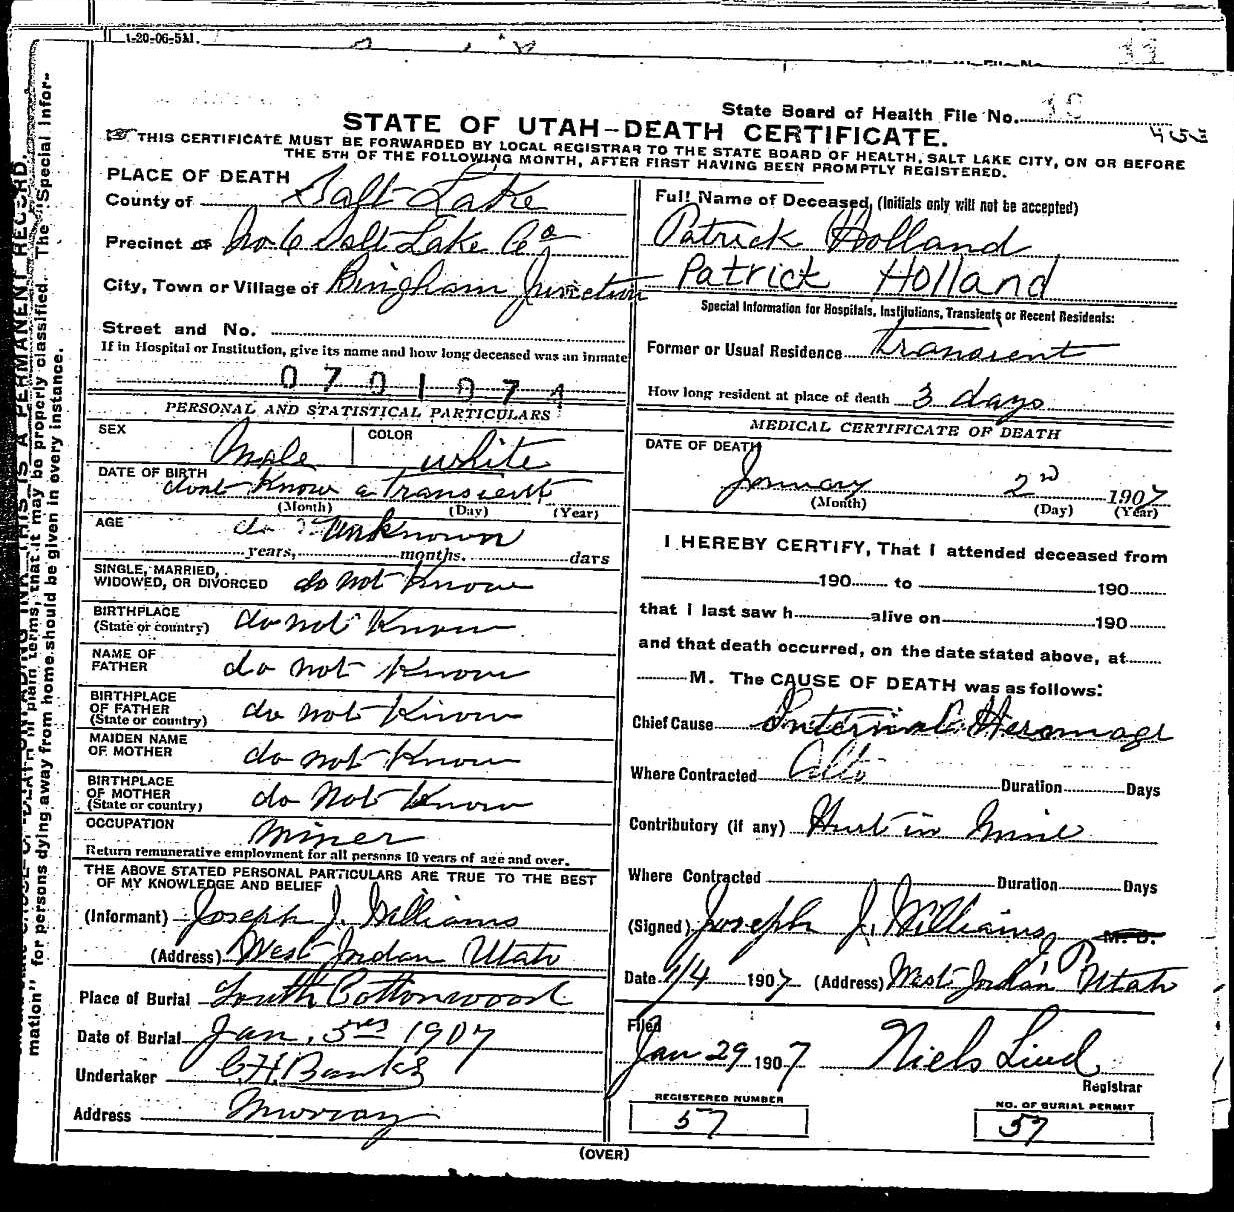 1-20-06-5M.
11
State Board of Health File No. 10
STATE OF UTAH-DEATH CERTIFICATE.
THIS CERTIFICATE MUST BE FORWARDED BY LOCAL REGISTRAR TO THE STATE BOARD OF HEALTH, SALT LAKE CITY, ON OR BEFORE
THE 5TH OF THE FOLLOWING MONTH, AFTER FIRST HAVING BEEN PROMPTLY REGISTERED.
PLACE OF DEATH
County of Salt Lake
Precinct of No 6 Salt Lake Co
City, Town or Village of Bingham Junction
Street and No.
If in Hospital or Institution, give its name and how long deceased was an inmate
0701074
PERSONAL AND STATISTICAL PARTICULARS
SEX Male COLOR white
DATE OF BIRTH dont know a transient
(Month) (Day) (Year)
AGE do Unknown
years, months. days
SINGLE, MARRIED,
WIDOWED, OR DIVORCED do not Know
BIRTHPLACE
(State or country) do not Know
NAME OF
FATHER do not Know
BIRTHPLACE
OF FATHER
(State or country) do not Know
MAIDEN NAME
OF MOTHER do not Know
BIRTHPLACE
OF MOTHER
(State or country) do not Know
OCCUPATION Miner
Return remunerative employment for all persons 10 years of age and over.
THE ABOVE STATED PERSONAL PARTICULARS ARE TRUE TO THE BEST
OF MY KNOWLEDGE AND BELIEF
(Informant) Joseph J. Williams
(Address) West Jordan Utah
Place of Burial South Cottonwood
Date of Burial Jan. 5 1907
Undertaker C.H. Banks
Address Murray
Full Name of Deceased, (Initials only will not be accepted)
Patrick Holland
Patrick Holland
Special Information for Hospitals, Institutions, Transients or Recent Residents:
Former or Usual Residence transient
How long resident at place of death 3 days
MEDICAL CERTIFICATE OF DEATH
DATE OF DEATH
January 2nd 1907
(Month) (Day) (Year)
I HEREBY CERTIFY, That I attended deceased from
190 to 190
that I last saw h alive on 190
and that death occurred, on the date stated above, at
M. The CAUSE OF DEATH was as follows:
Chief Cause Internal Heromage
Where Contracted Alta Duration Days
Contributory (if any) Hurt in Mine
Where Contracted Duration Days
(Signed) Joseph J. Williams M. D.
J P
Date 1/4 1907 (Address) West Jordan Utah
Filed
Jan 29 1907 Niels Lind
Registrar
REGISTERED NUMBER
57
NO. OF BURIAL PERMIT
57
(OVER)
THIS IS A PERMANENT RECORD.
in plain terms, that it may be properly classified. The "Special Infor-
mation" for persons dying away from home should be given in every instance.